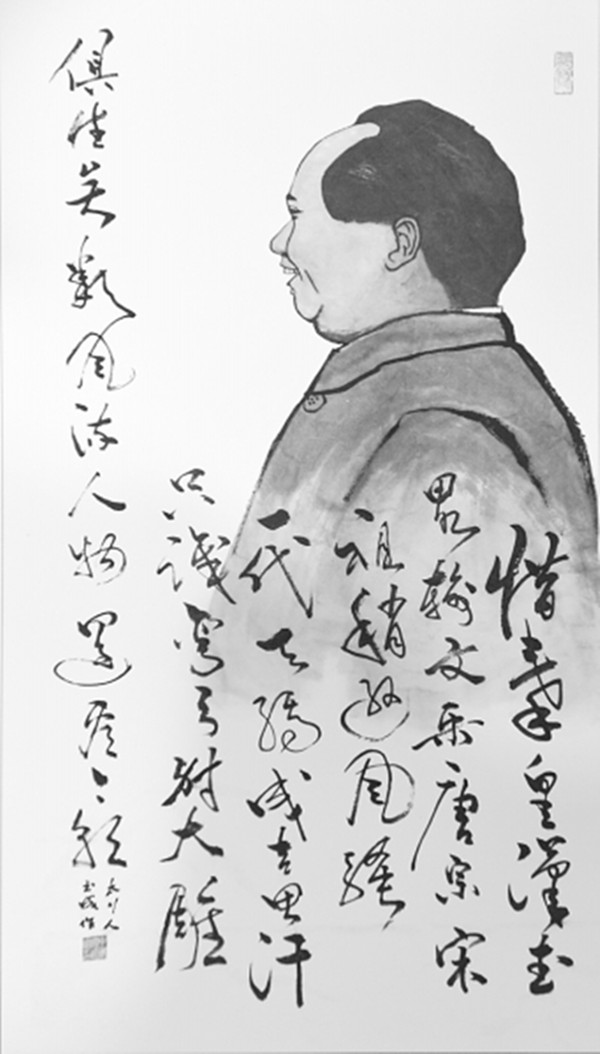 惜秦皇漢武
畧輸文采唐宗宋
祖稍遜風騷
一代天驕成吉思汗
只識彎弓射大雕
俱往矣數風流人物還看今朝